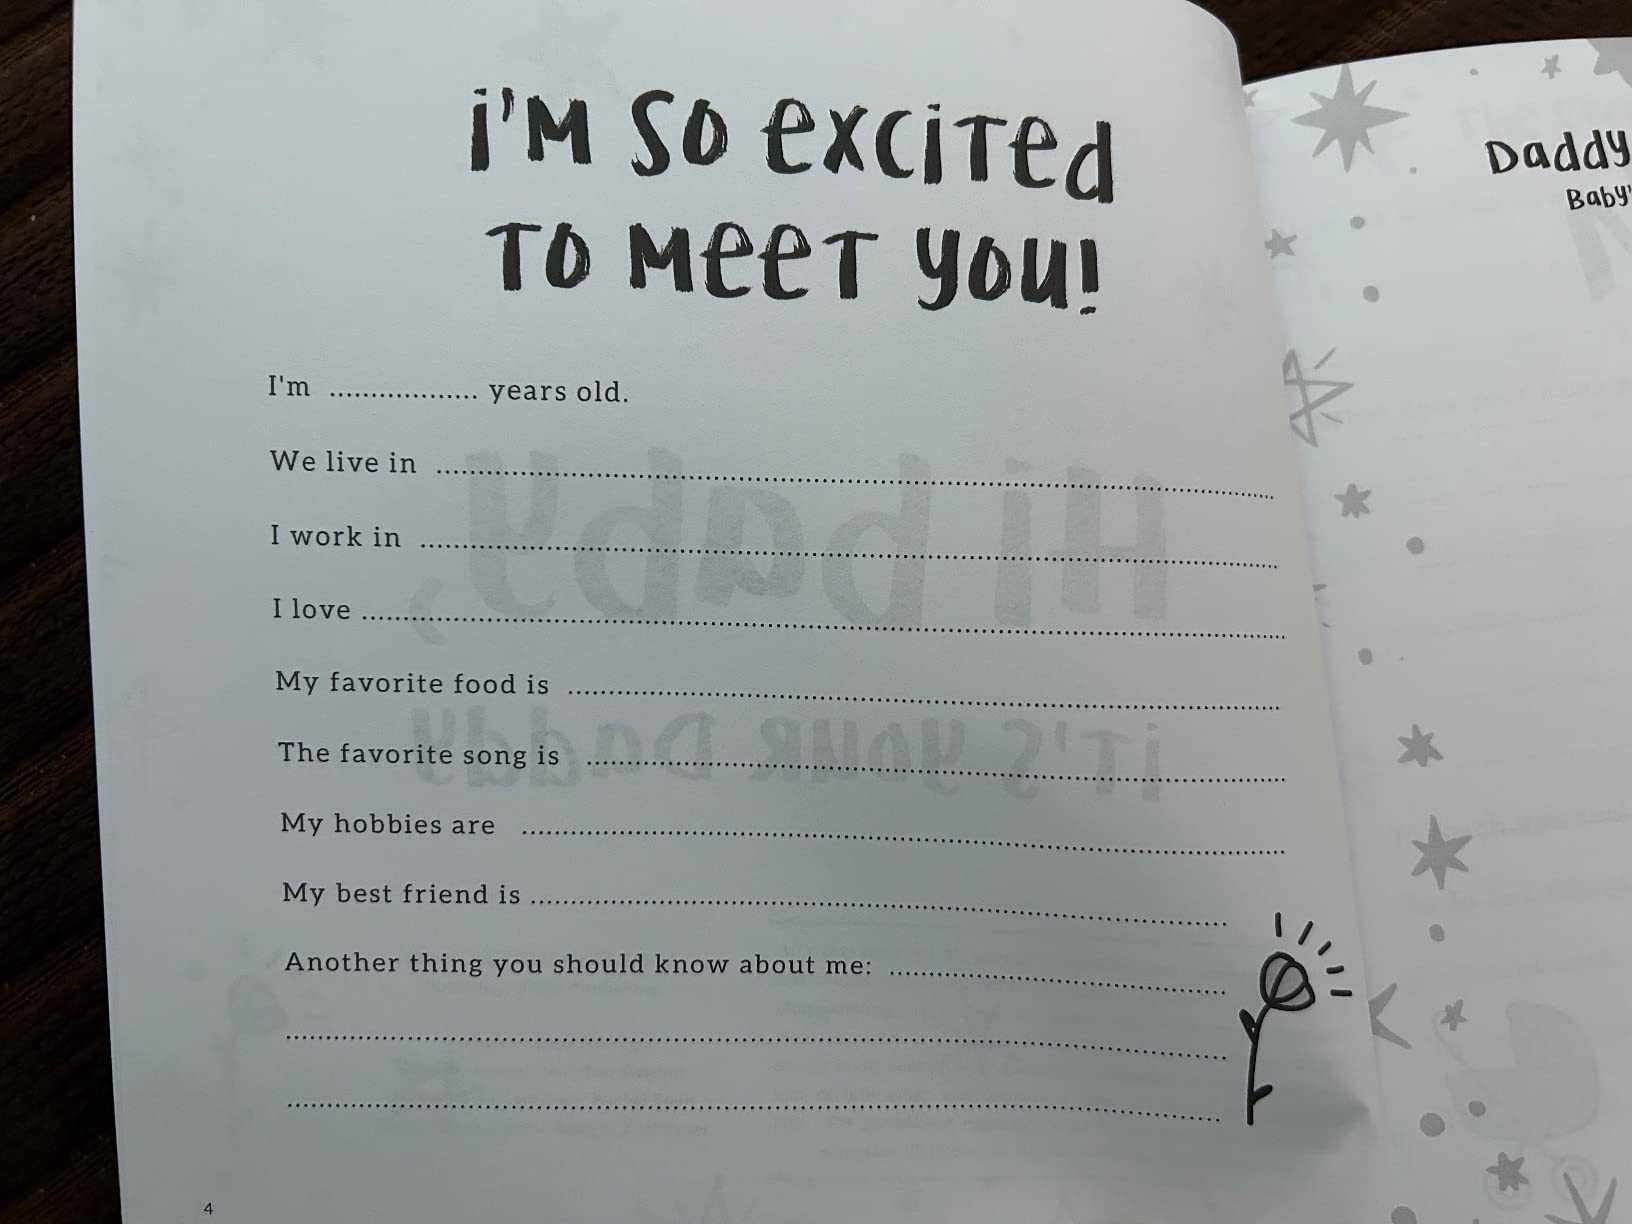 i'm so excited
to meet you!
I'm .................. years old.
We live in ....................................................................................................
I work in ....................................................................................................
I love ....................................................................................................
My favorite food is ....................................................................................................
The favorite song is ....................................................................................................
My hobbies are ....................................................................................................
My best friend is ....................................................................................................
Another thing you should know about me: ..................................................
....................................................................................................
....................................................................................................
4
Hi baby,
it's your Daddy
Daddy
Baby'